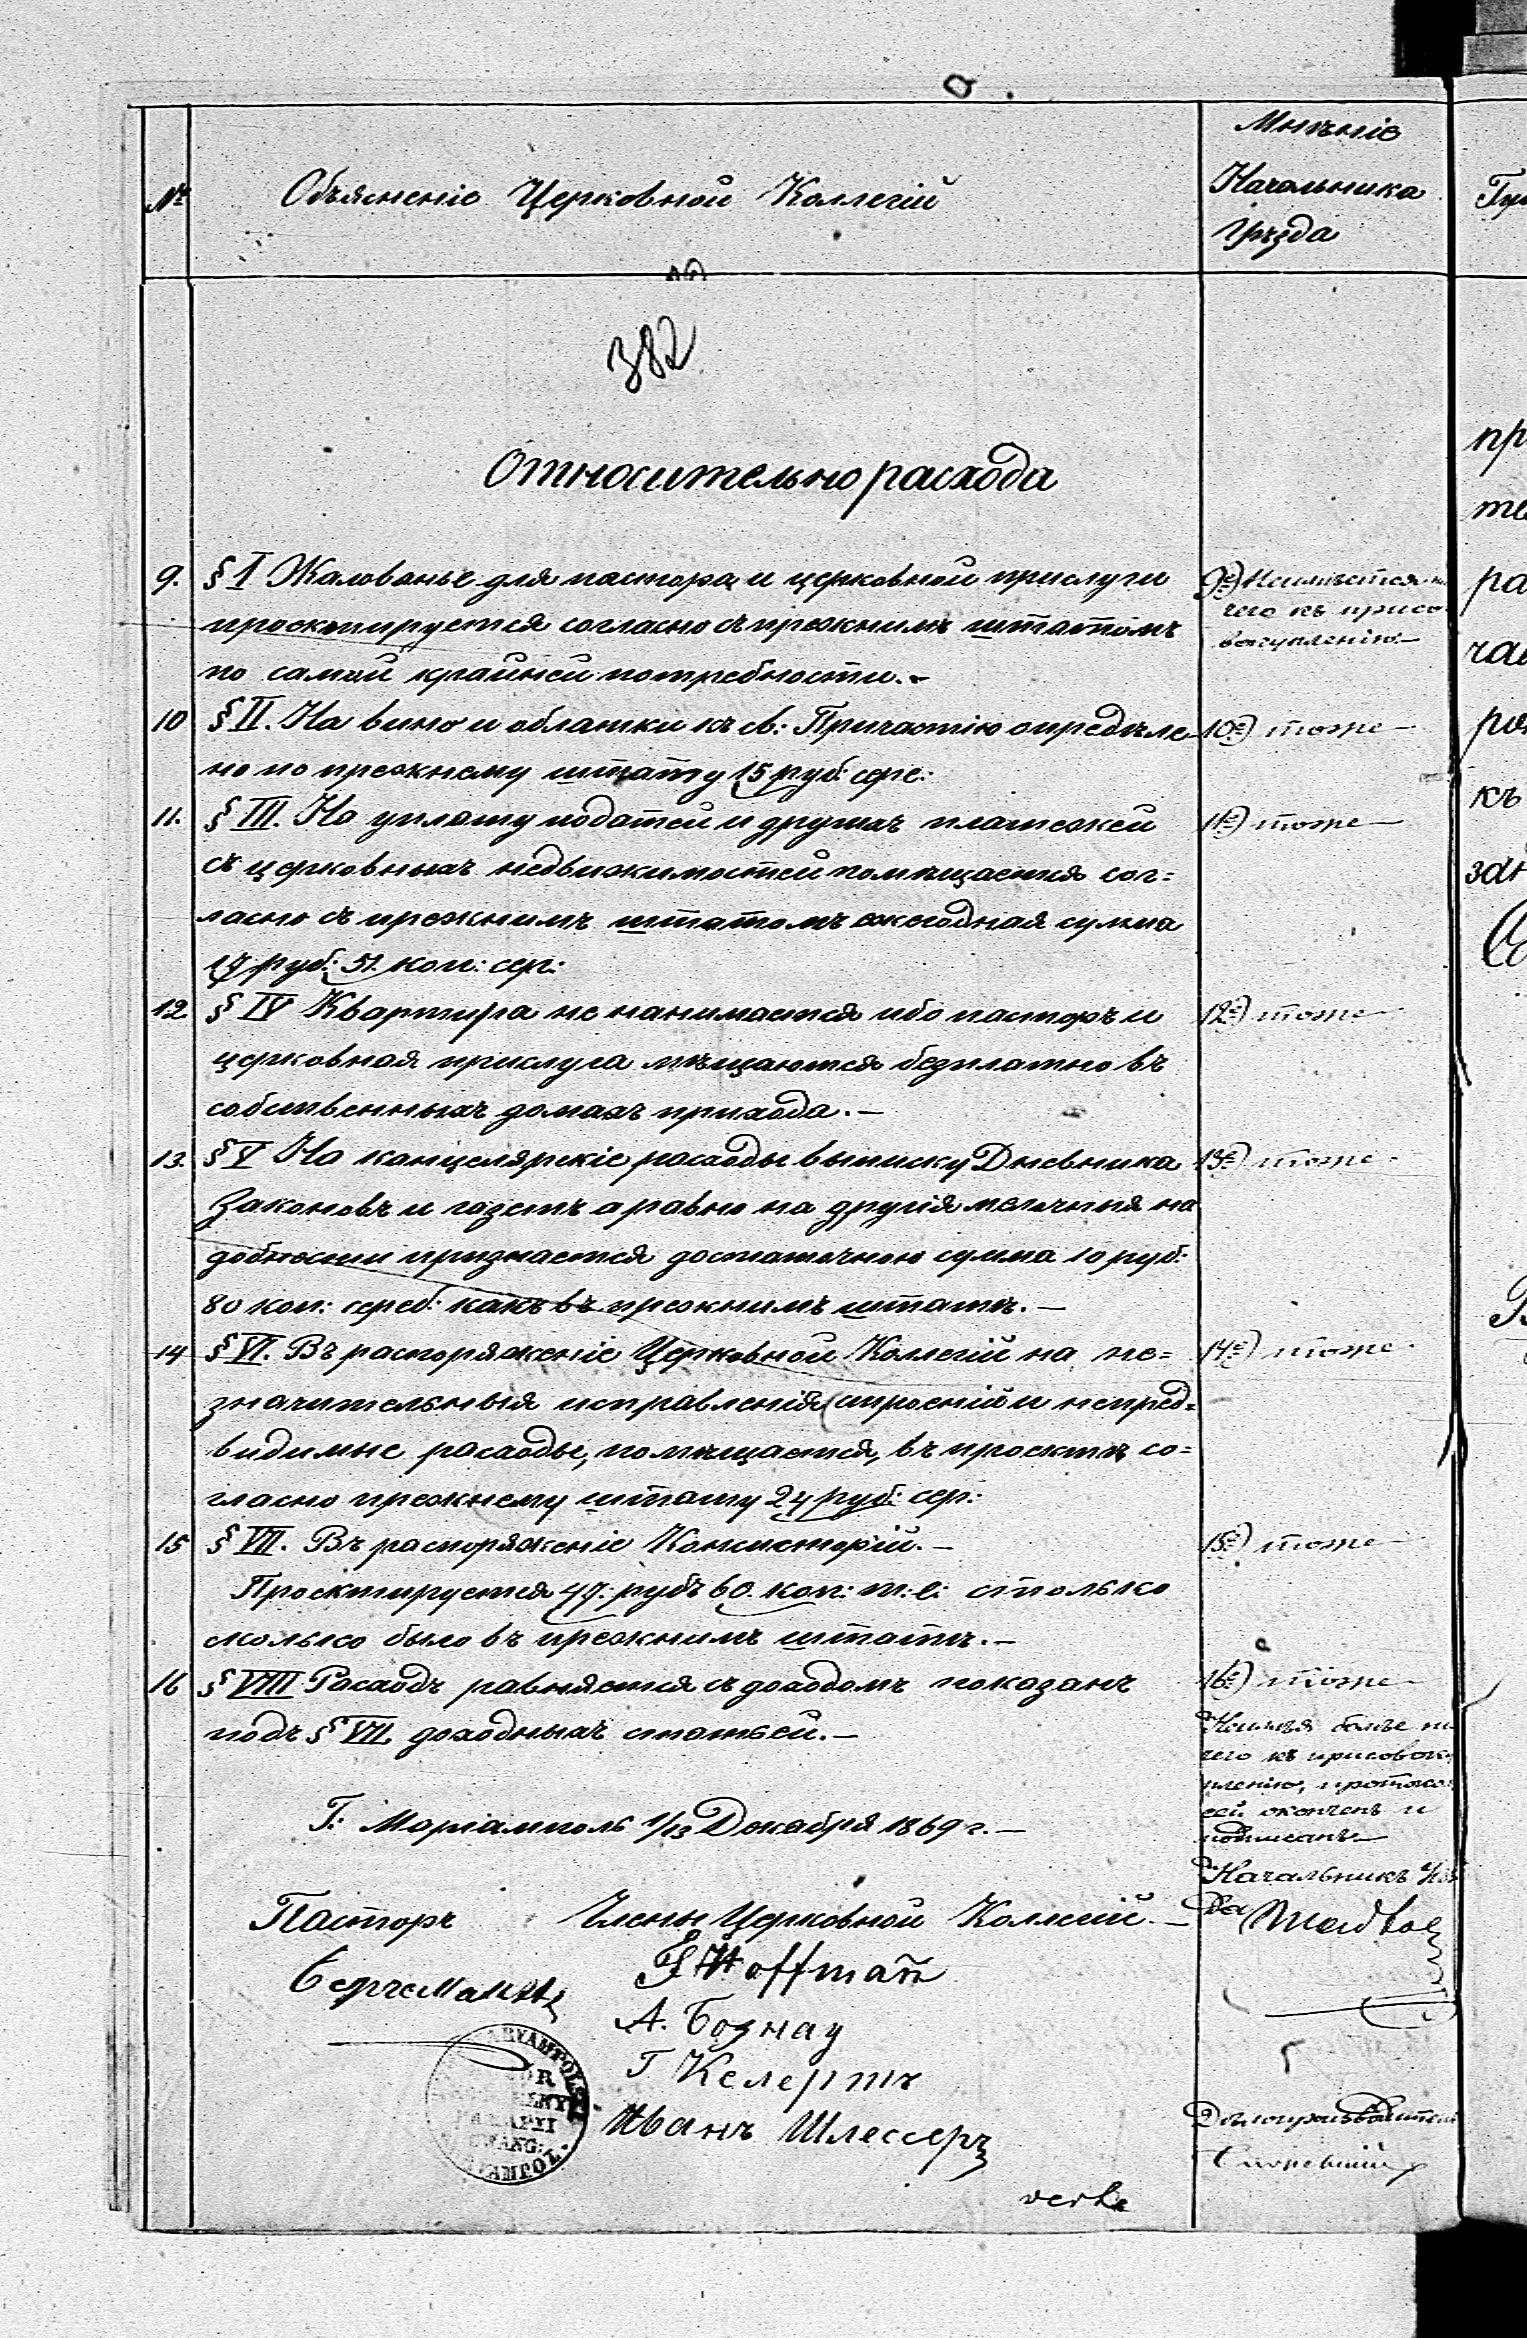 №
Объясненіе Церковной Коллегіи
Мнѣніе
Начальника
Уѣзда
382
Относительно расхода
9. § I Жалованье для пастора и церковной прислуги
проектируется согласно съ прежнимъ штатомъ
по самой крайней потребности.-
9е) Неимѣется ни
чего къ присо
вокупленію.-
10 § II. На вино и облатки къ св: Причастію опредѣле
но по прежнему штату 15 руб: сере:
10е) тоже -
11. § III. На уплату податей и другихъ платежей
съ церковныхъ недвижимостей помѣщается сог=
ласно съ прежнимъ штатомъ ежегодная сумма
17 руб: 51. коп: сер:
11е) тоже -
12 § IV Квартира не нанимается ибо пасторъ и
церковная прислуга мѣщаются безплатно въ
собственныхъ домахъ прихода. -
12е) тоже
13. § V На канцелярскіе расходы выписку Дневника
Законовъ и газетъ а равно на другія мелочныя на
добности признается достаточною сумма 10 руб:
80 коп: сереб: какъ въ прежнимъ штатѣ. -
13е) тоже -
14 § VI. Въ распоряженіе Церковной Коллегіи на не=
значительныя исправленія строеній и непред=
видимые расходы, помѣщается, въ проектѣ со=
гласно прежнему штату 24 руб: сер:
14е) тоже -
15 § VII. Въ распоряженіе Консисторіи. -
Проектируется 47: рубъ 60. коп: т: е: столько
сколько было въ прежнимъ штатѣ. -
15е) тоже -
16 § VIII Расходъ равняется съ доходомъ показанъ
подъ § VII доходныхъ статьей. -
16е) тоже -
Неимѣя болѣе ни
чего къ присовоку
пленію, протоко
сей оконченъ и
подписанъ -
Г: Маріамполь 1/13 Декабря 1869 г. -
Начальникъ Уѣз
да
Пасторъ
Члены Церковной Коллегіи. -
F Hoffmann
Г Келертъ
Иванъ Шлессеръ
Дѣлопроизводитель